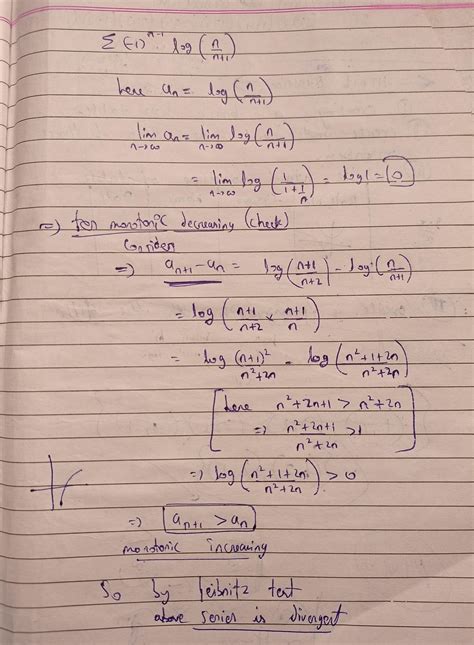 Σ (-1)^{n-1} log (n/n+1)
here a_n = log (n/n+1)
lim_{n→∞} a_n = lim_{n→∞} log (n/n+1)
= lim_{n→∞} log (1/1+1/n) = log 1 = 0
=) for monotonic decreasing (check)
Consider
=) a_{n+1} - a_n = log (n+1/n+2) - log (n/n+1)
= log (n+1/n+2 × n+1/n)
= log (n+1)²/n²+2n = log (n²+1+2n/n²+2n)
[here n²+2n+1 > n²+2n
=) n²+2n+1/n²+2n > 1]
=) log (n²+1+2n/n²+2n) > 0
=) a_{n+1} > a_n
monotonic increasing
So by leibnitz test
above series is divergent